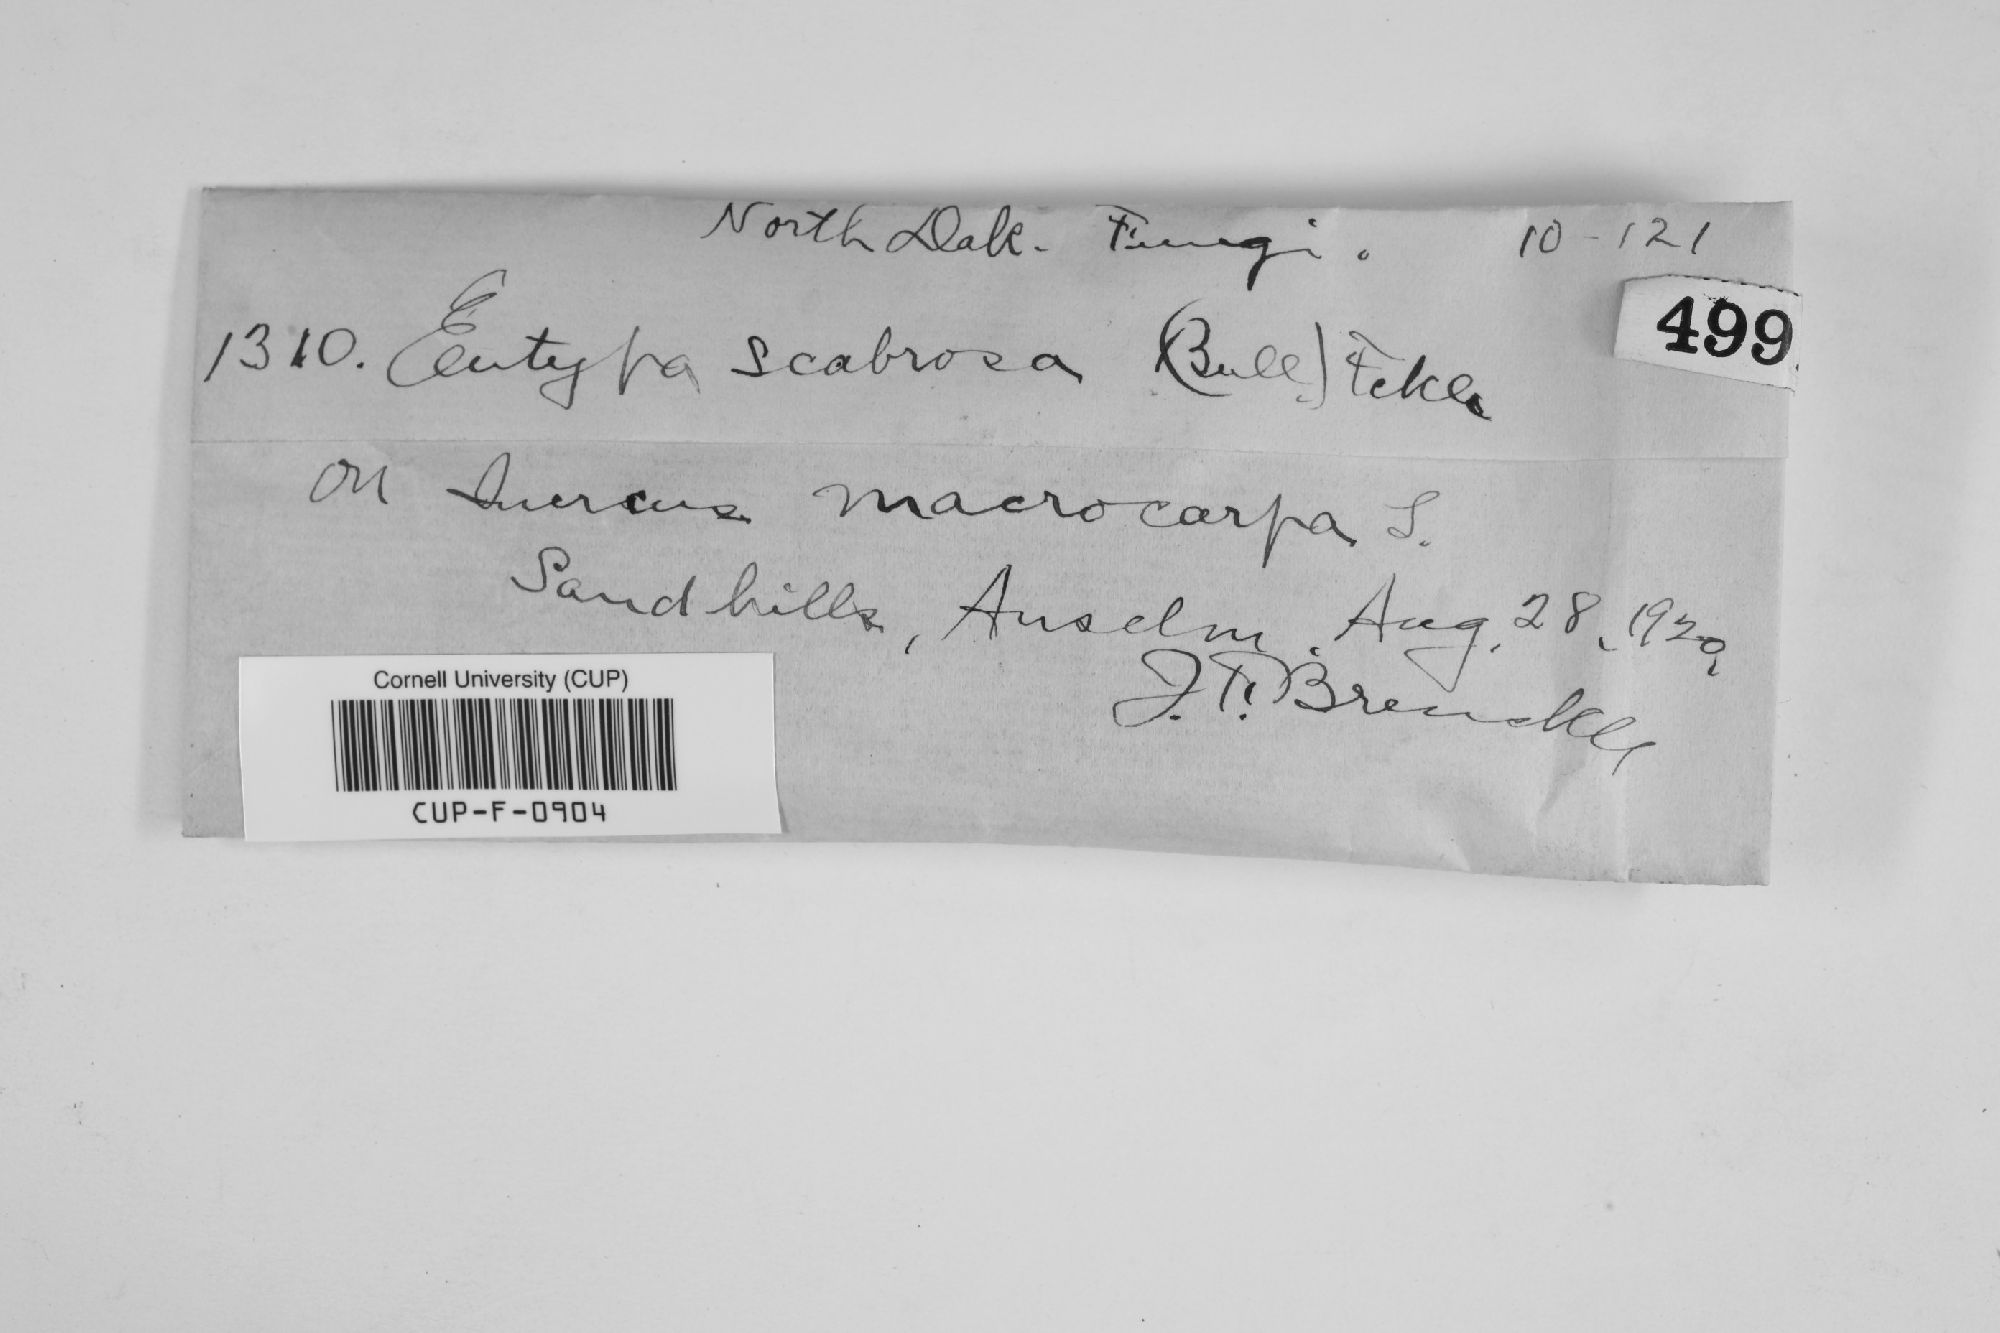 North Dak. Fungi. 10-121
499.
1310. Eutypa scabrosa (Bull.) Fckl.
on Quercus macrocarpa L.
Sandhills, Anselm. Aug. 28, 1920,
J.F. Brenckle
Cornell University (CUP)
CUP-F-0904